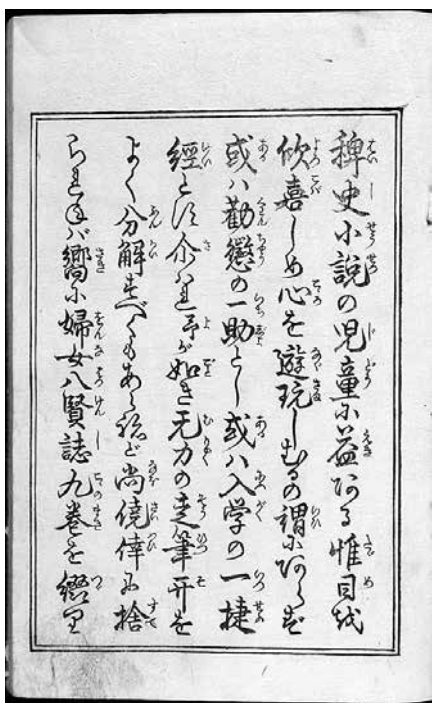 稗史小説の児童に益ある惟目を
欣喜しめ心を遊玩しむるの謂にあらず
或ハ勸懲の一助とし或ハ入学の一捷
經とす介ハあれ予が如き无力の走筆开を
よく分解すべくもあらねど尚僥倖に捨
られざれバ嚮に婦女八賢誌九巻を綴り